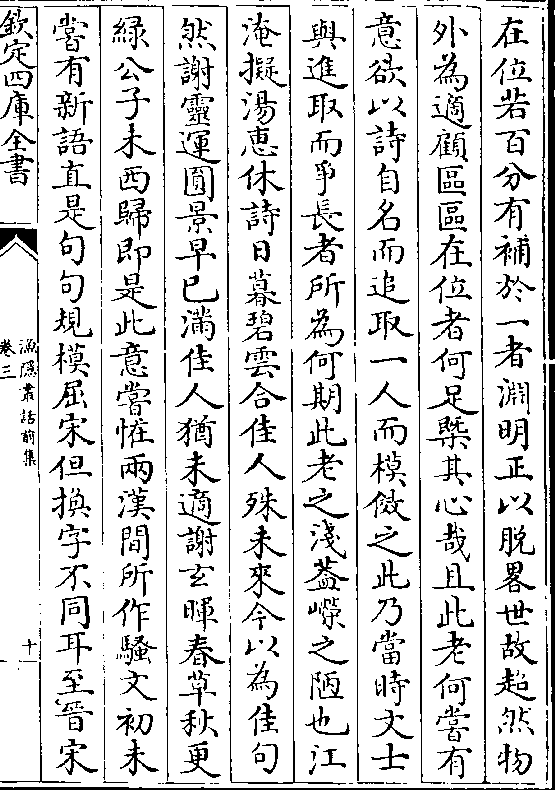 在位若百分有補於一者淵明正以脫畧世故超然物
外為適顧區區在位者何足槩其心哉且此老何嘗有
意欲以詩自名而追取一人而模倣之此乃當時文士
與進取而爭長者所為何期此老之淺葢嶸之陋也江
淹擬湯惠休詩日暮碧雲合佳人殊未來今以為佳句
然謝靈運圓景早已滿佳人猶未適謝玄暉春草秋更
緑公子未西歸即是此意嘗恠兩漢間所作騷文初未
嘗有新語直是句句規模屈宋但換字不同耳至晉宋
欽定四庫全書
漁隱叢話前集
卷三
十